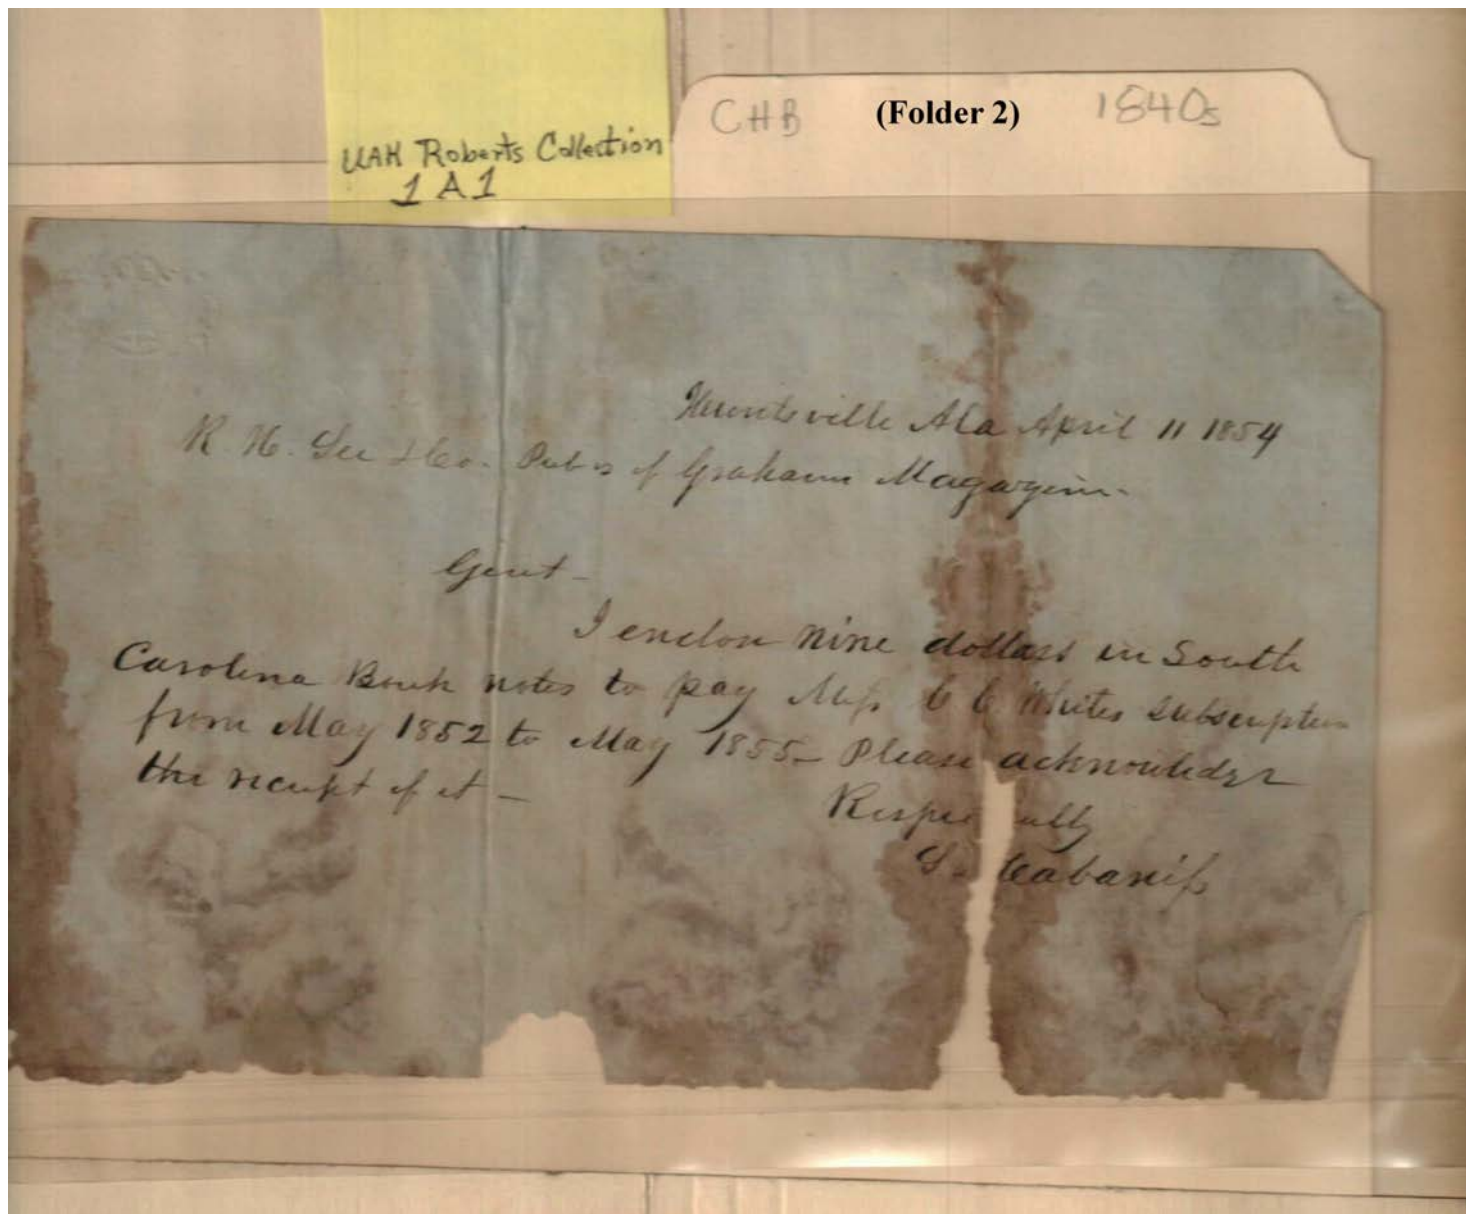 CHB (Folder 2) 1840s
UAH Roberts Collection
1 A 1
Huntsville Ala April 11 1854
R. H. See & Co. Pubrs of Grahams Magazine.
Gent -
I enclose nine dollars in South
Carolina Bank notes to pay Miss C C Whites subscription
from May 1852 to May 1855 - Please acknowledge
the receipt of it -
Respe ully
S. Cabaniss